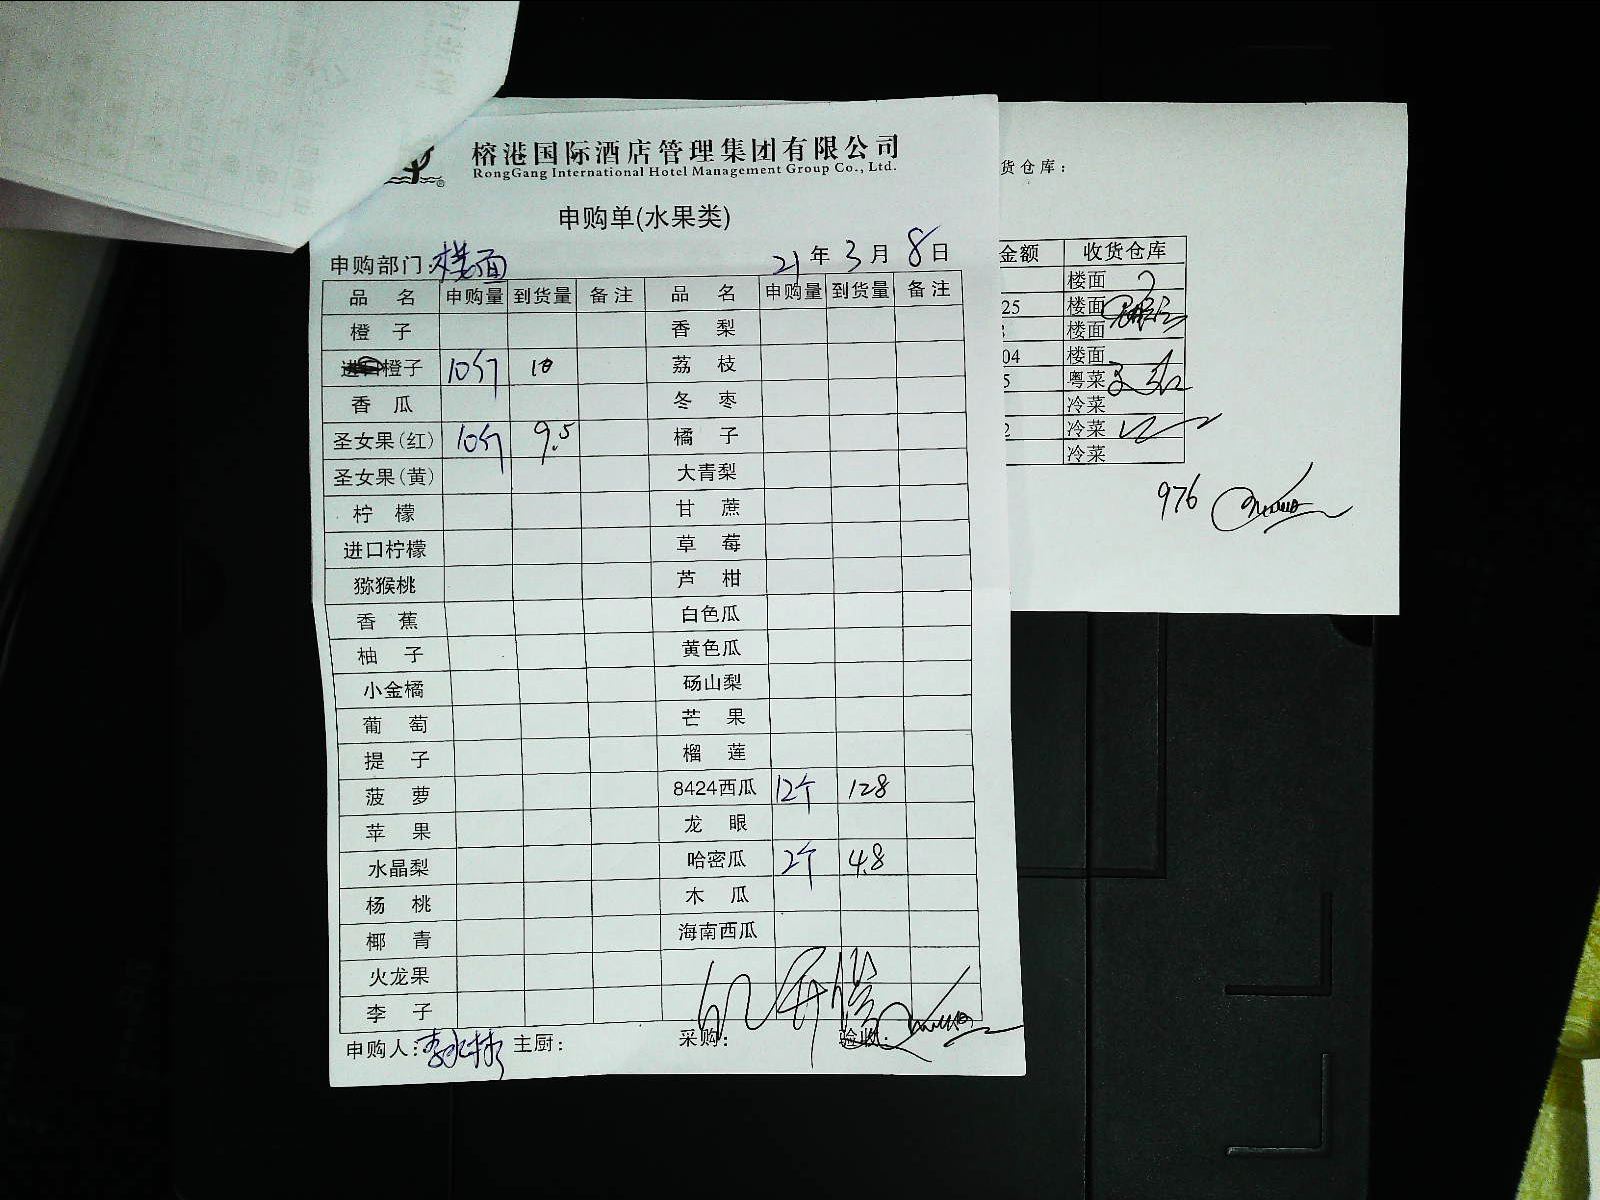 榕港国际酒店管理集团有限公司
RongGang International Hotel Management Group Co., Ltd.
申购单(水果类)
申购部门:楼面 21年3月8日
品名 申购量 到货量 备注 品名 申购量 到货量 备注
橙子 香梨
橙子 10斤 10 荔枝
香瓜 冬枣
圣女果(红) 10斤 9.5 橘子
圣女果(黄) 大青梨
柠檬 甘蔗
进口柠檬 草莓
猕猴桃 芦柑
香蕉 白色瓜
柚子 黄色瓜
小金橘 砀山梨
葡萄 芒果
提子 榴莲
菠萝 8424西瓜 12个 128
苹果 龙眼
水晶梨 哈密瓜 2个 4.8
杨桃 木瓜
椰青 海南西瓜
火龙果
李子
申购人: 主厨: 采购: 验收:
货仓库:
金额 收货仓库
楼面
25 楼面
楼面
04 楼面
5 粤菜
冷菜
2 冷菜
冷菜
976